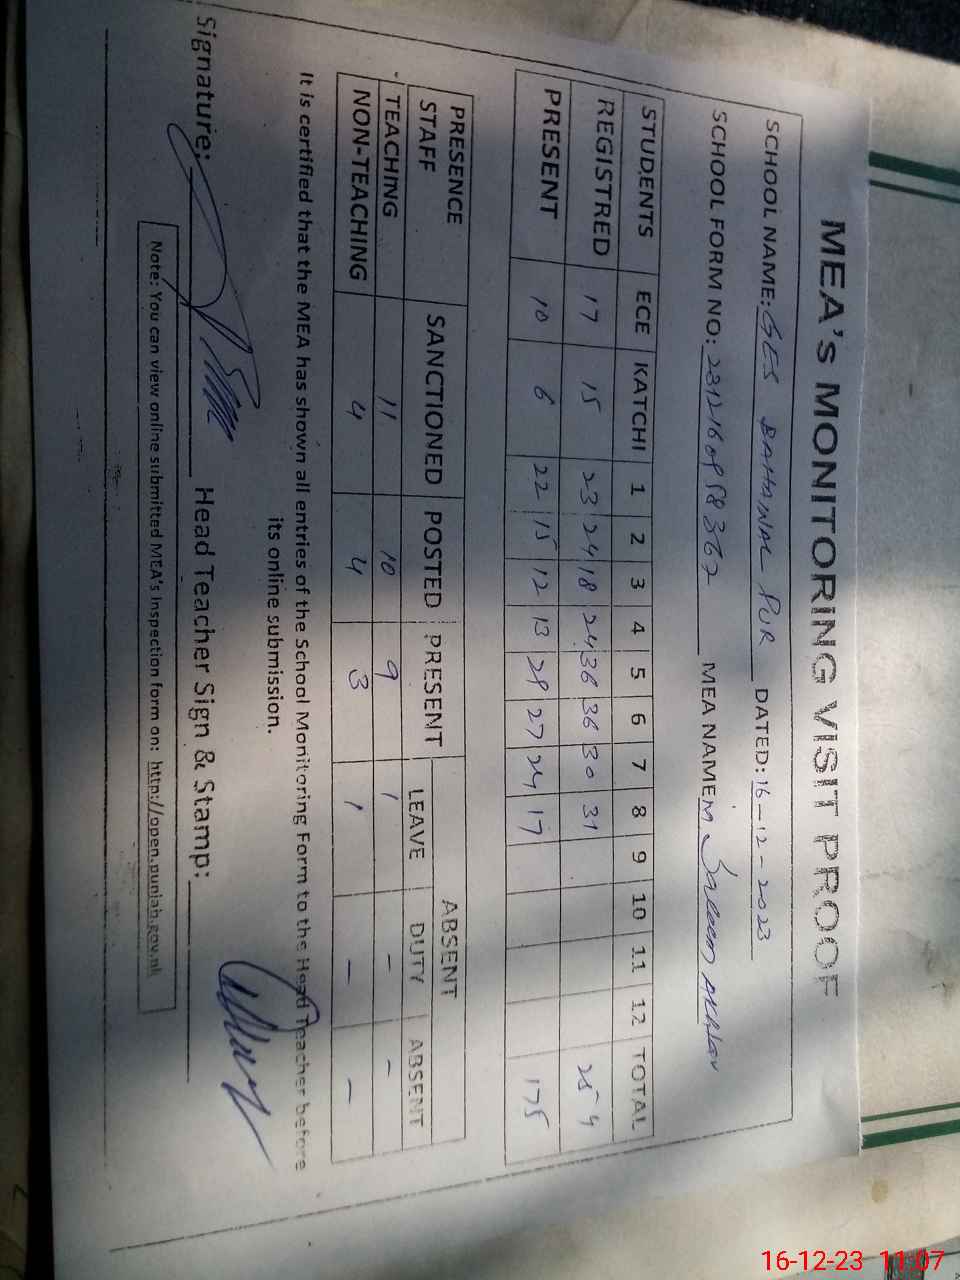 MEA's MONITORING VISIT PROOF
SCHOOL NAME: GES BAHAWAL PUR DATED: 16-12-2023
SCHOOL FORM NO: MEA NAME M Saleem Akhtar
STUDENTS ECE KATCHI 1 2 3 4 5 6 7 8 9 10 11 12 TOTAL
REGISTRED 17 15 23 24 18 24 36 36 30 31 254
PRESENT 10 6 22 15 12 13 29 27 24 17 175
PRESENCE ABSENT
STAFF SANCTIONED POSTED PRESENT LEAVE DUTY ABSENT
TEACHING 11 10 9 1 - -
NON-TEACHING 4 4 3 1 - -
It is certified that the MEA has shown all entries of the School Monitoring Form to the Head Teacher before
its online submission.
Signature: Head Teacher Sign & Stamp:
Note: You can view online submitted MEA's Inspection form on: http://open.punjab.gov.pk
16-12-23 11:07